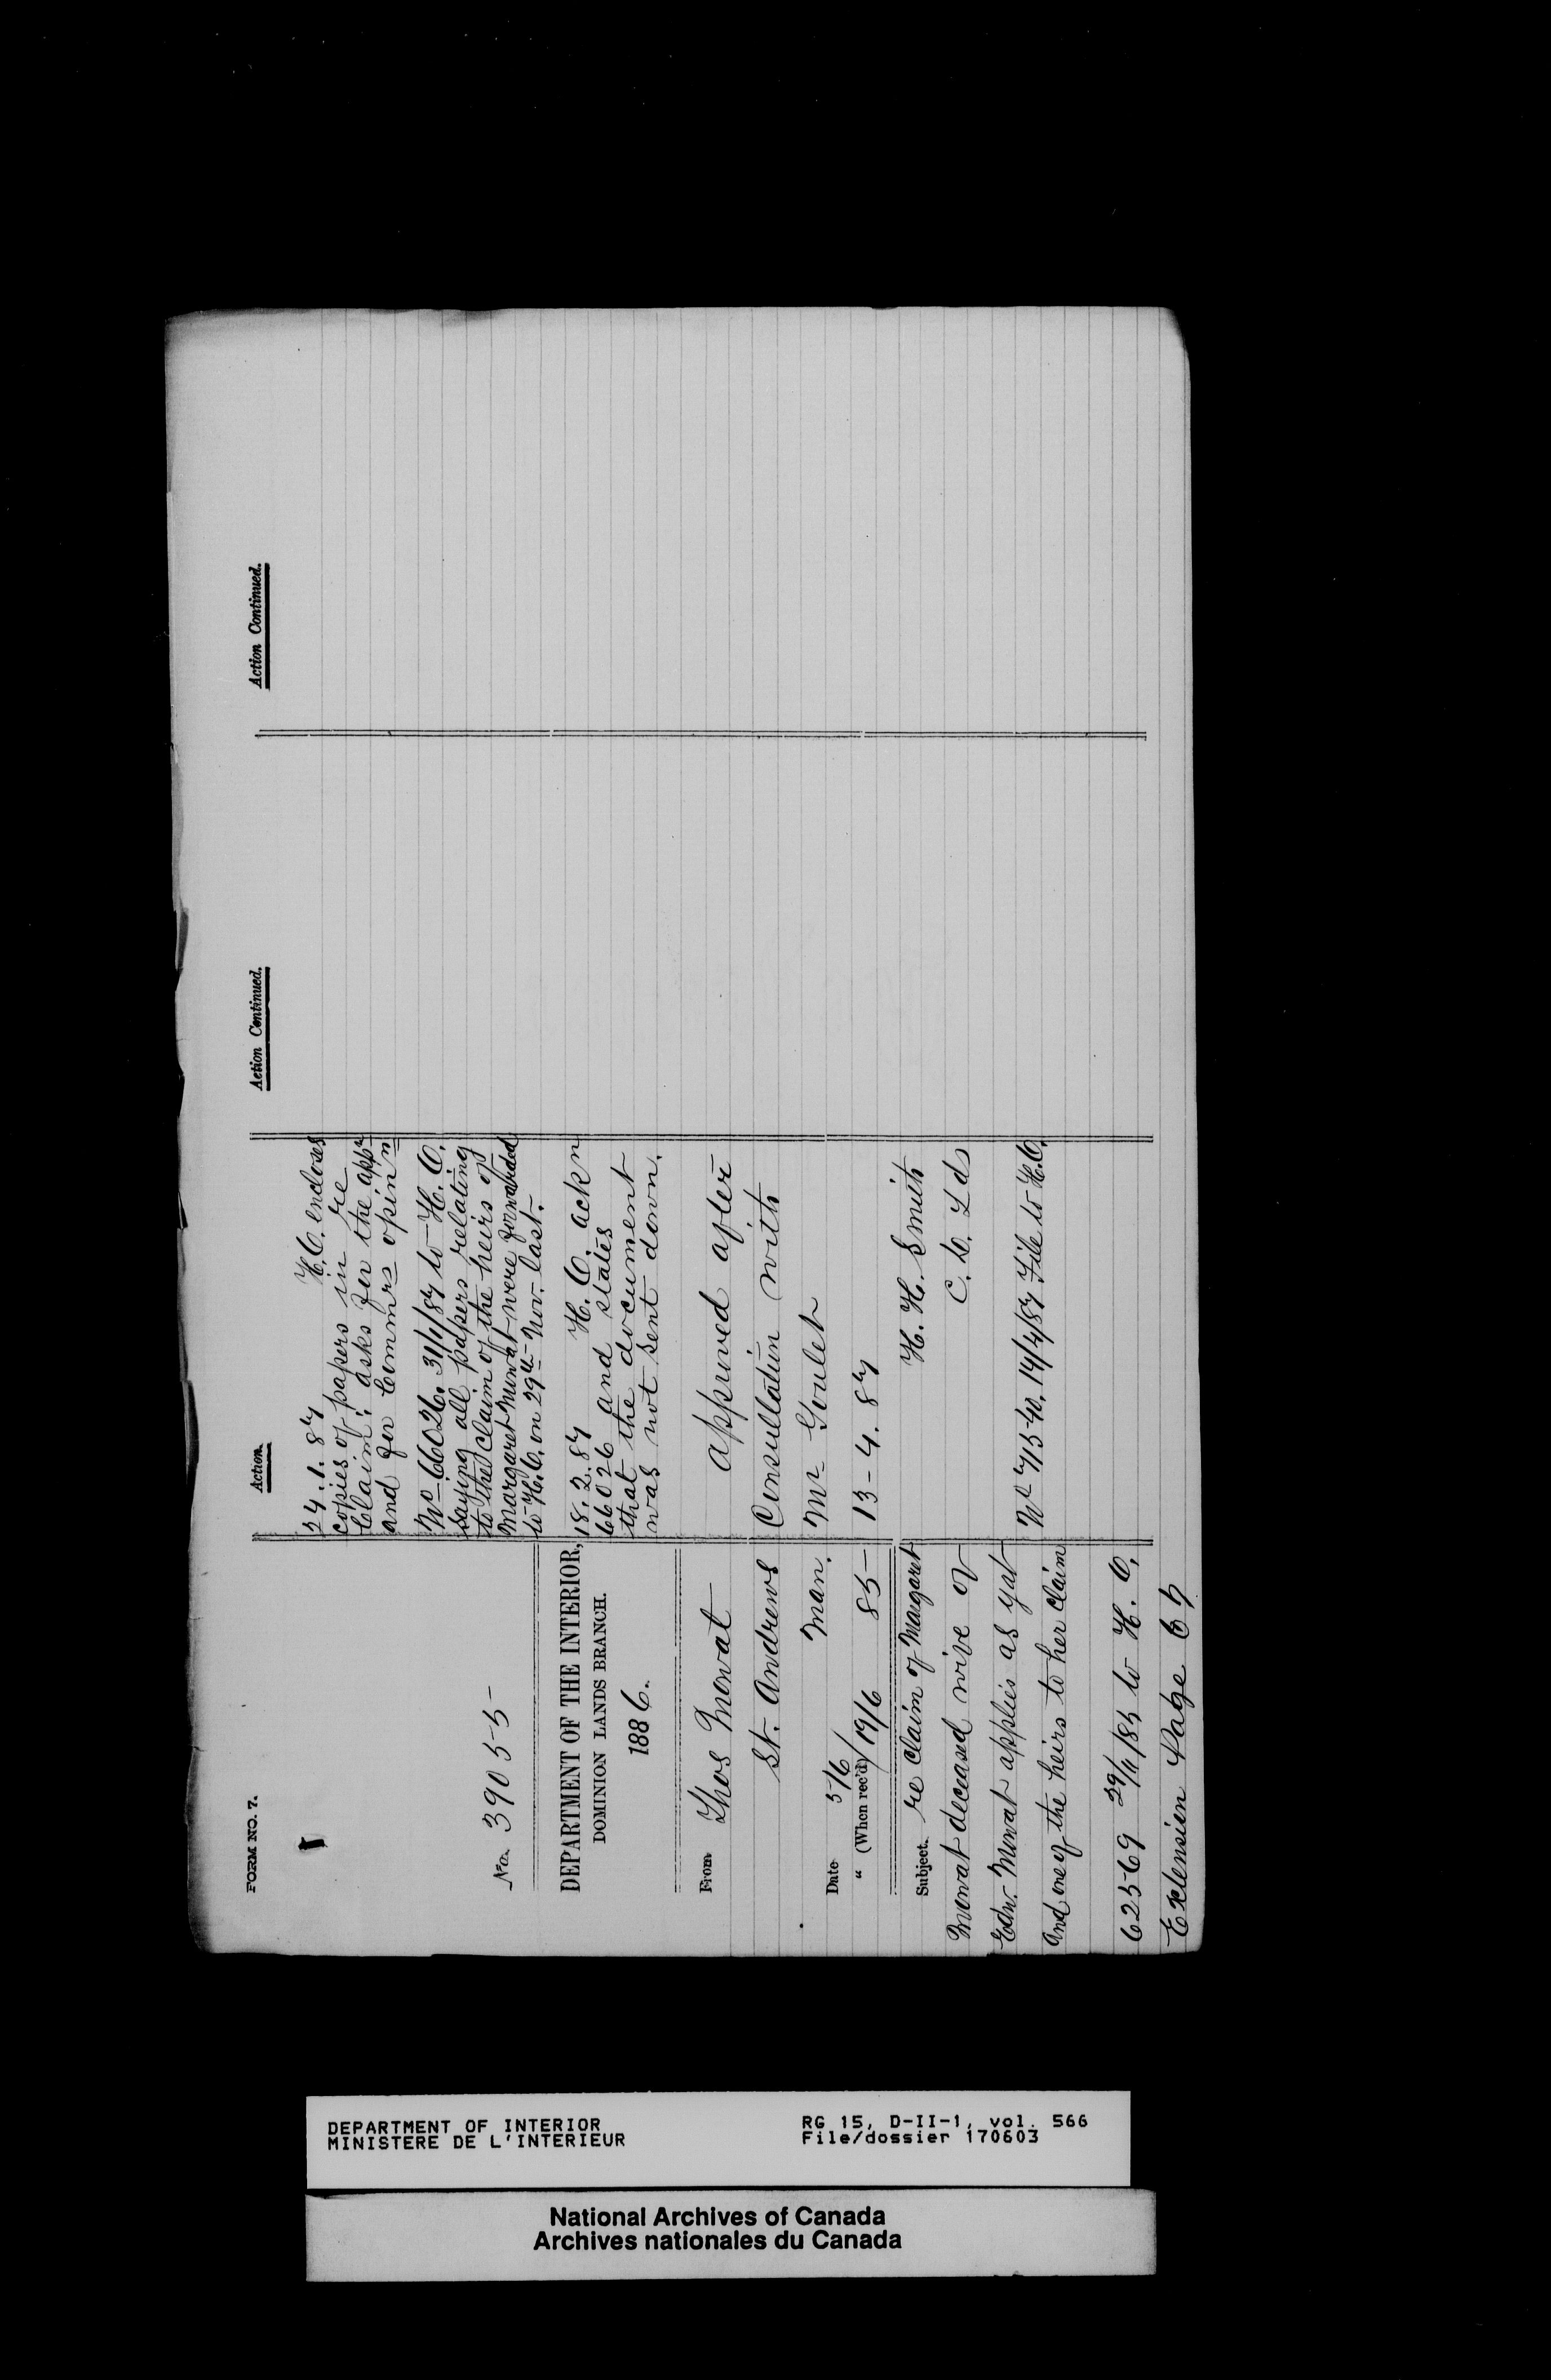 FORM NO. 7.
No. 39055
DEPARTMENT OF THE INTERIOR,
DOMINION LANDS BRANCH.
1886.
From Thos Mowat
St. Andrews
Man.
Date 5/6
" (When rec'd) 19/6 85
Subject. re claim of Margaret
Mowat deceased wife of
Edw. Mowat applies as
and one of the heirs to her claim
62569 29/11/85 to H. O.
Extension Page 67
Action.
24.1.87 H.O. encloses
copies of papers in re
Claim: asks for the appn
and for Commrs opinn
No 66026. 31/1/87 to H. O.
saying all papers relating
to the claim of the heirs of
Margaret Mowat were forwarded
to H.O. on 29th Nov. last.
18.2.87 H. O. ackn
66026 and states
that the document
was not sent down.
Approved after
Consultation with
Mr Goulet
13-4.87
H. H. Smith
C. D. Lds
No 71540. 14/4/87 File to H.O.
Action Continued.
Action Continued.
DEPARTMENT OF INTERIOR
MINISTERE DE L'INTERIEUR
RG 15, D-II-1, vol. 566
File/dossier 170603
National Archives of Canada
Archives nationales du Canada